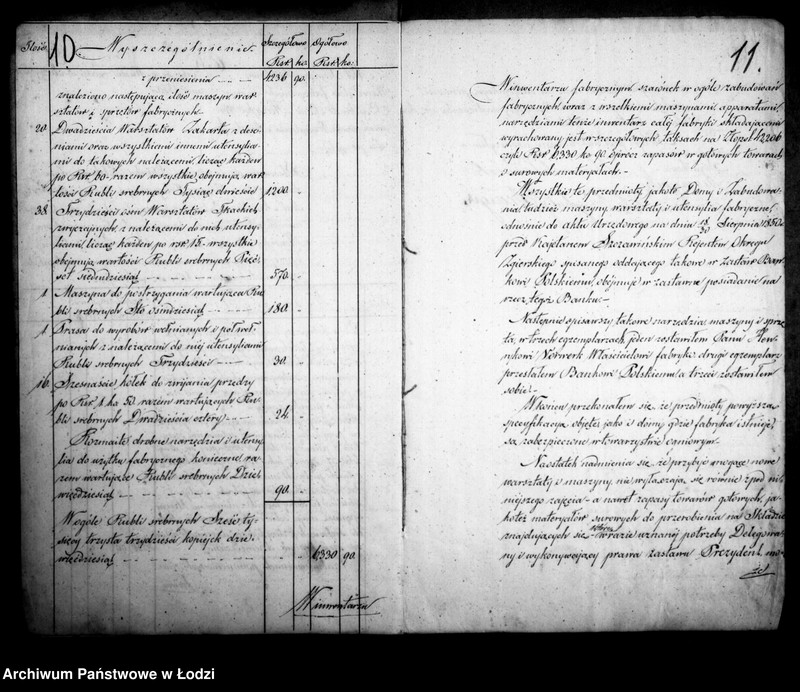 Ilość 10. Wyszczególnienie. Szczegółowo Ogółowo
Rsr. ko. Rsr. ko.
z przeniesienia 4236 90.
znaleziono następującą ilość maszyn war-
sztatów i sprzętów fabrycznych.
20. Dwadzieścia Warsztatów Żakarta z dese-
niami oraz wszystkiemi innemi utensylia-
mi do takowych należącemi, licząc każden
po Rsr. 60. razem wszystkie obejmują war-
tości Rubli srebrnych Tysiąc dwieście 1,200.
38. Trzydzieści ośm Warsztatów Tkackich
zwyczajnych, z należącemi do nich utensy-
liami, licząc każden po rsr. 15. wszystkie
obejmują wartości Rubli srebrnych Pięć-
set siedmdziesiąt 570.
1 Maszyna do postrzygania wartująca Ru-
bli srebrnych Sto ośmdziesiąt 180.
1 Prasa do wyrobów wełnianych i półweł-
nianych z należącemi do niej utensyliami
Rubli srebrnych Trzydzieści 30.
16. Szesnaście kółek do zwijania przędzy
po Rsr. 1 ko. 50. razem wartujących Ru-
bli srebrnych Dwadzieścia cztery 24.
Rozmaite drobne narzędzia i utensy-
lia do użytku fabrycznego konieczne ra-
zem wartujące Rubli srebrnych Dzie-
więćdziesiąt 90.
Wogóle Rubli srebrnych Sześć ty-
sięcy trzysta trzydzieści kopiejek dzie-
więćdziesiąt 6,330 90.
W inwentarzu
11.
W inwentarzu fabrycznym szacunek w ogóle zabudowań
fabrycznych, wraz z wszelkiemi maszynami, apparatami,
narzędziami tenże inwentarz całej fabryki składającemi
wyrachowany jest w szczegółowych taksach na Złpol: 42,206
czyli Rsr. 6,330 ko. 90. oprócz zapasów w gotowych towarach
o surowych materyałach.
Wszystkie te przedmioty jakoto Domy i Zabudowa-
nia tudzież maszyny warsztaty i utensylia fabryczne,
odnośnie do aktu Urzędowego na dniu 18/30 Sierpnia 1850 r.
przed Kajetanem Szczawińskim Rejentem Okręgu
Zgierskiego spisanego oddającego takowe w Zastaw Ban-
kowi Polskiemu, obejmuję w zastawne posiadanie na
rzecz tegoż Banku.
Następnie spisawszy takowe narzędzia maszyny i sprzę-
ta, w trzech egzemplarzach, jeden zostawiłem Panu Hen-
rykowi Vorwerk Właścicielowi fabryki, drugi egzemplarz
przesłałem Bankowi Polskiemu a trzeci zostawiłem
sobie.
W końcu przekonałem się że przedmioty powyższą
specyfikacyą objęte jako i domy gdzie fabryka istnieje
są zabezpieczone w towarzystwie ogniowym.
Naostatek nadmienia się że przybyć mogące nowe
warsztaty i maszyny, nie wyłączają się również z pod ni-
niejszego zajęcia – a nawet zapasy towarów gotowych, ja-
koteż materyałów surowych do przerobienia na Składzie
znajdujących się w razie uznanej potrzeby Delegowa-
ny i wykonywający prawa zastawu Prezydent mo-
Archiwum Państwowe w Łodzi